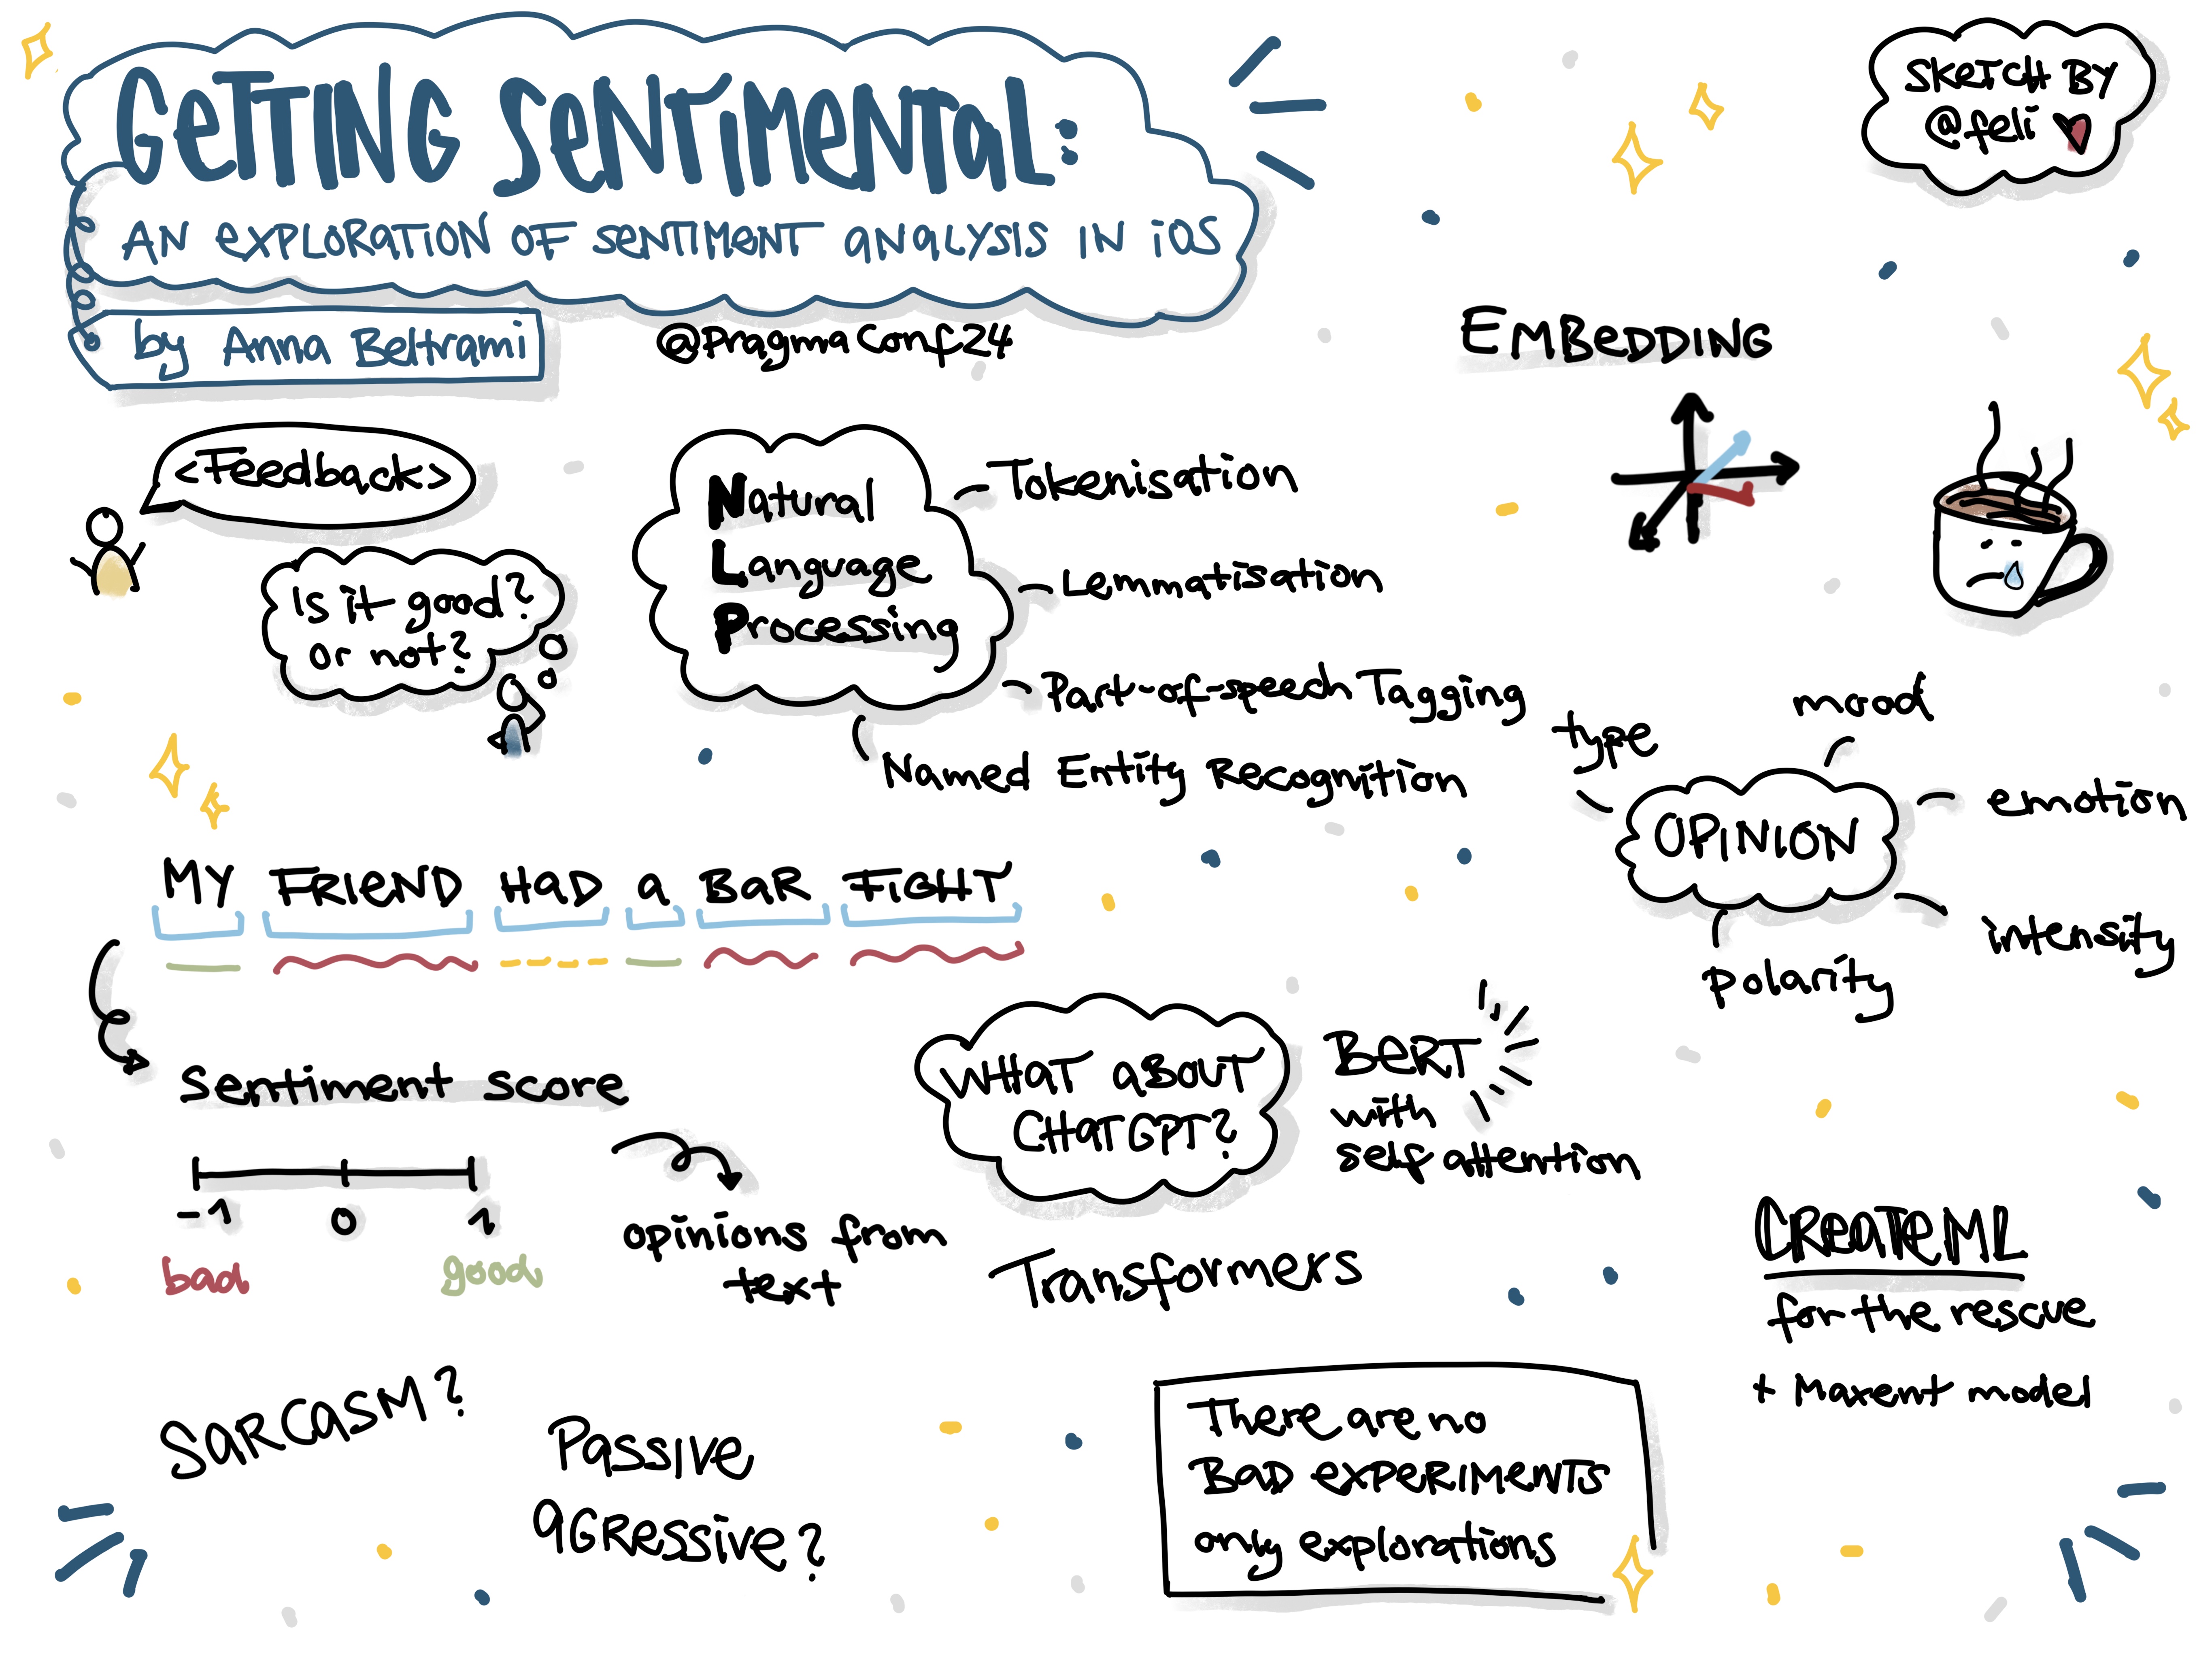 GETTING SENTIMENTAL:
AN EXPLORATION OF SENTIMENT ANALYSIS IN iOS
by Anna Beltrami
@PragmaConf24
SKETCH BY
@feli
<Feedback>
Is it good?
or not?
Natural
Language
Processing
Tokenisation
Lemmatisation
Part-of-speech Tagging
Named Entity Recognition
EMBEDDING
type
mood
OPINION
emotion
intensity
polarity
MY FRIEND HAD a BAR FIGHT
Sentiment score
-1 0 1
bad good
opinions from
text
WHAT ABOUT
CHATGPT?
BERT
with
self attention
Transformers
CREATEML
for the rescue
+ Maxent model
SARCASM?
PASSIVE
AGRESSIVE?
There are no
BAD EXPERIMENTS
only explorations